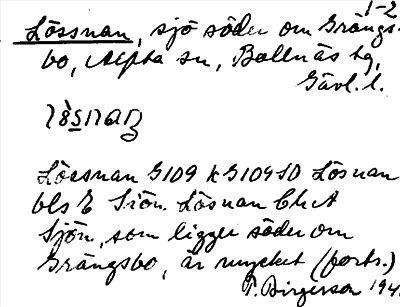 1-2
Lössnan, sjö söder om Grängs-
bo, Alfta sn, Bollnäs tg,
Gävl. l.
Lössnan G109 k G109 SO Lösnan
bls E Sjön. Lösnan bl.a
Sjön, som ligger söder om
Grängsbo, är mycket (forts.)
P. Birgerson 194